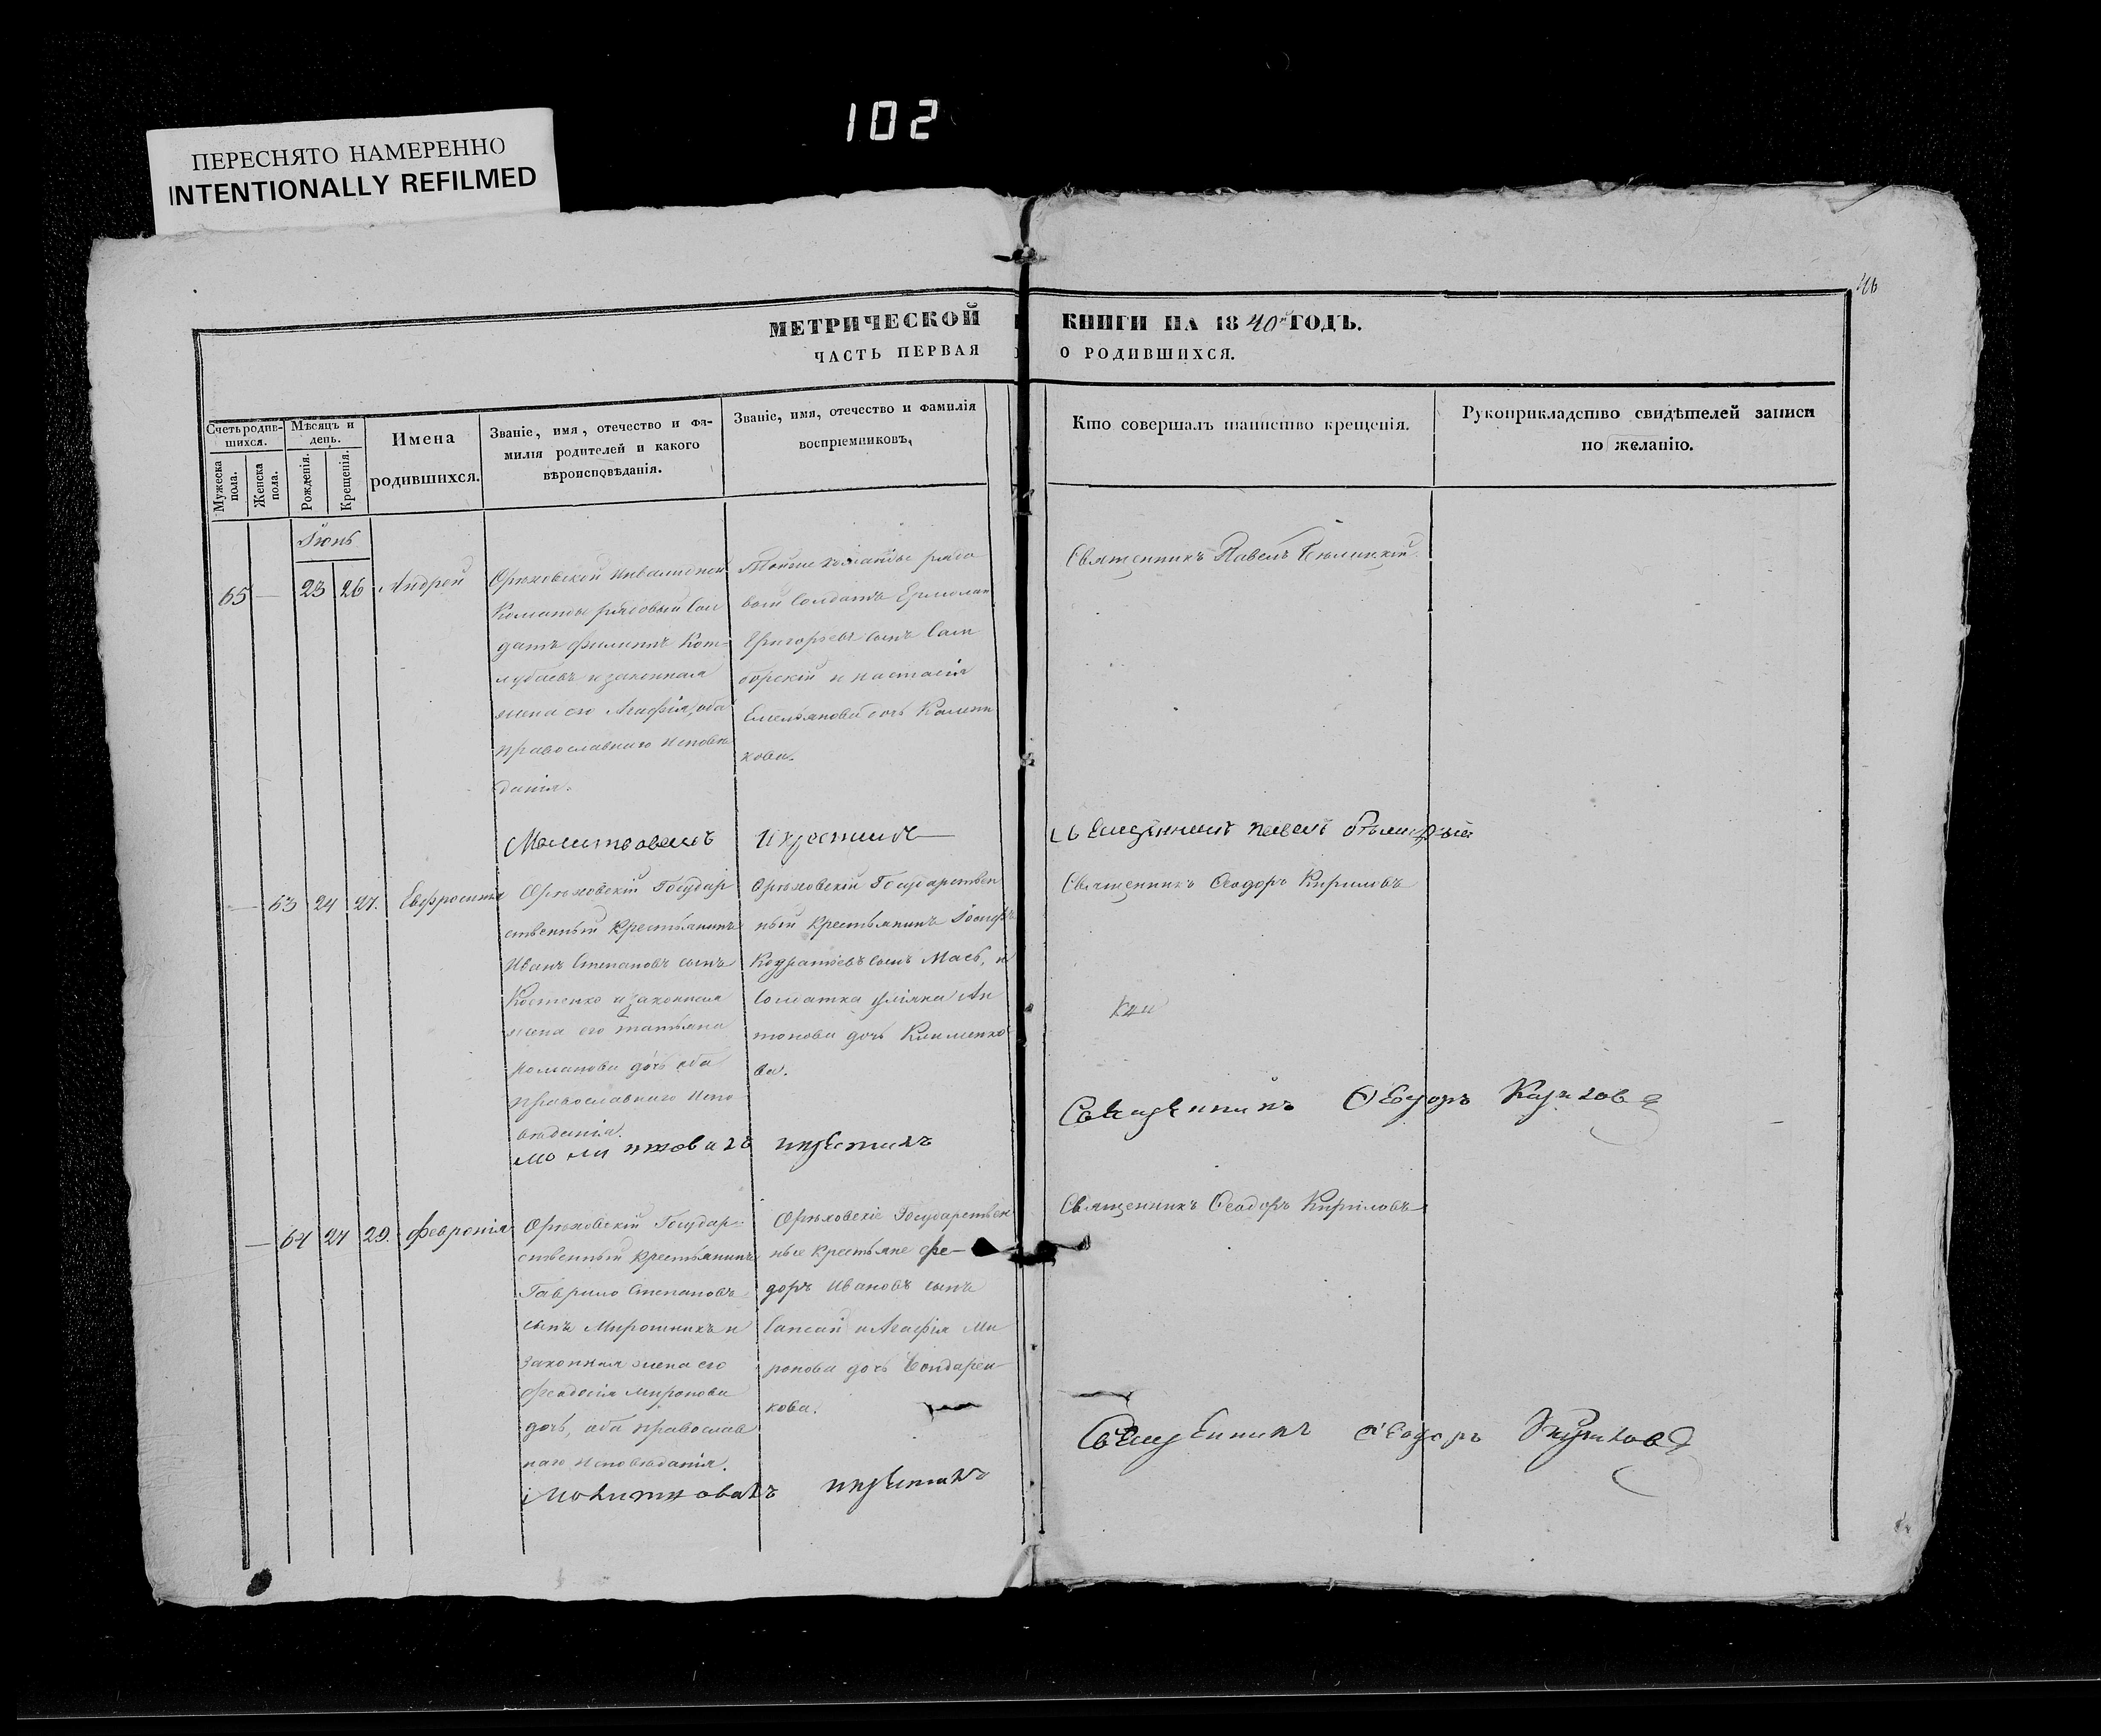 102
ПЕРЕСНЯТО НАМЕРЕННО
INTENTIONALLY REFILMED
МЕТРИЧЕСКОЙ КНИГИ НА 1840й ГОДЪ.
ЧАСТЬ ПЕРВАЯ О РОДИВШИХСЯ.
Счетъ родившихся.
Мужеска пола.
Женска пола.
Мѣсяцъ и день.
Рожденія.
Крещенія.
Имена
родившихся.
Званіе, имя, отечество и фа-
милія родителей и какого
вѣроисповѣданія.
Званіе, имя, отечество и фамилія
воспріемниковъ,
Кто совершалъ таинство крещенія.
Рукоприкладство свидѣтелей записи
по желанію.
Іюнь
65 — 23 26 Андрей
Орѣховской Инвалидной
Команды рядовый Сол
датъ Филиппъ Кот-
лубаевъ и законная
жена его Агафія, оба
православнаго исповѣ
данія.
Тойже команды рядо
вый Солдатъ Ермолай
Григорьевъ сынъ Сам
борскій и Настасія
Емельянова дочь Калени
кова.
Священникъ Павелъ Бѣлицкій
Молитвовалъ и крестилъ
Священникъ Павелъ Бѣлицкій
— 63 24 27. Евфросинія
Орѣховскій Государ
ственный крестьянинъ
Иванъ Степановъ сынъ
Костенко и законная
жена его Татьяна
Романова дочь оба
православнаго испо
вѣданія.
Орѣховскій Государствен
ный крестьянинъ Іосифъ
Кодратьевъ сынъ Мась, и
Солдатка Уліяна Ан
тонова дочь Клименко
ва.
Священникъ Феодоръ Кириловъ
Молитвовалъ и крестилъ
Священникъ Феодоръ Кириловъ
— 64 24 29. Февронія
Орѣховскій Государ-
ственный крестьянинъ
Гаврило Степановъ
сынъ Мирошникъ и
законная жена его
Феодосія Миронова
дочь, оба православ
наго исповѣданія.
Орѣховскіе Государствен
ные крестьяне Фе-
доръ Ивановъ сынъ
Гапсай и Агафія Ми
ронова дочь Бондарен-
кова.
Священникъ Феодоръ Кириловъ
Молитвовалъ и крестилъ
Священникъ Феодоръ Кириловъ